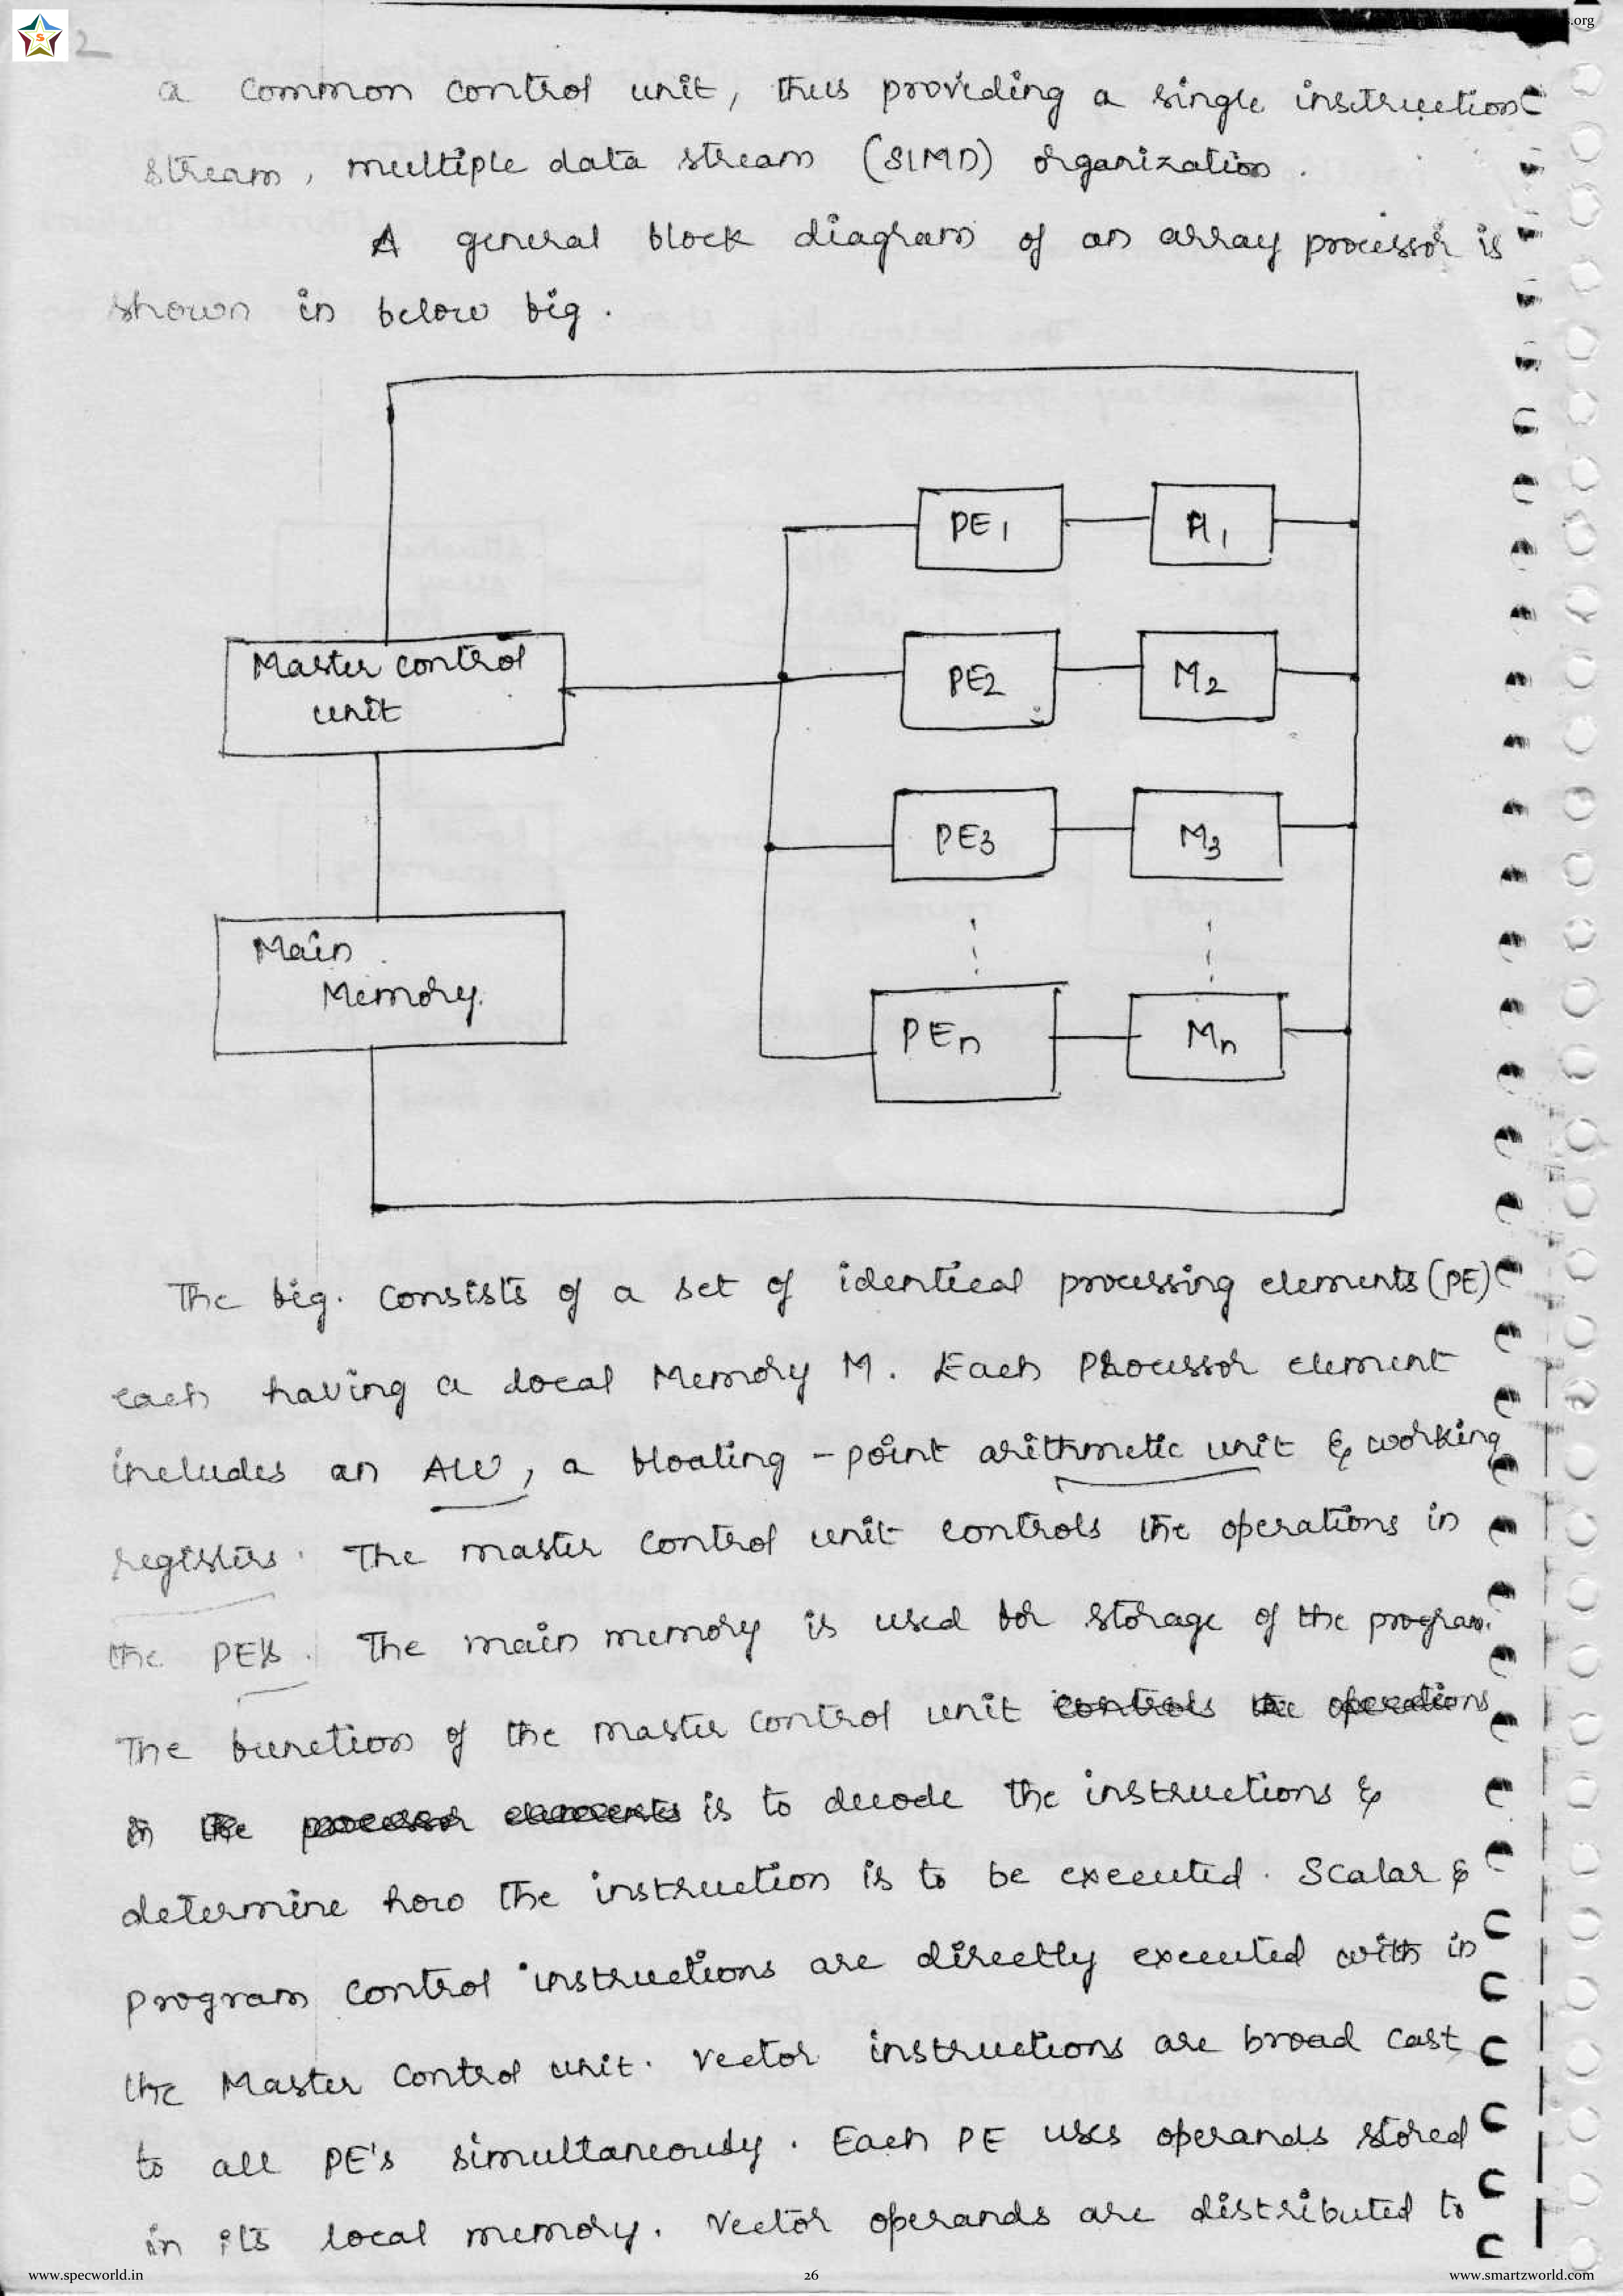 S
2
s.org
a common control unit, thus providing a single instruction
stream, multiple data stream (SIMD) organization.
A general block diagram of an array processor is
shown in below fig.
PE1 M1
Master control
unit
PE2 M2
PE3 M3
Main
Memory.
PEn Mn
The fig. consists of a set of identical processing elements (PE)
each having a local Memory M. Each Processor element
includes an ALU, a floating - point arithmetic unit & working
registers. The master control unit controls the operations in
the PE's. The main memory is used for storage of the program.
The function of the master control unit controls the operations
in the processor elements is to decode the instructions &
determine how the instruction is to be executed. Scalar &
program control instructions are directly executed with in
the Master control unit. Vector instructions are broad cast
to all PE's simultaneously. Each PE uses operands stored
in its local memory. Vector operands are distributed to
www.specworld.in 26 www.smartzworld.com